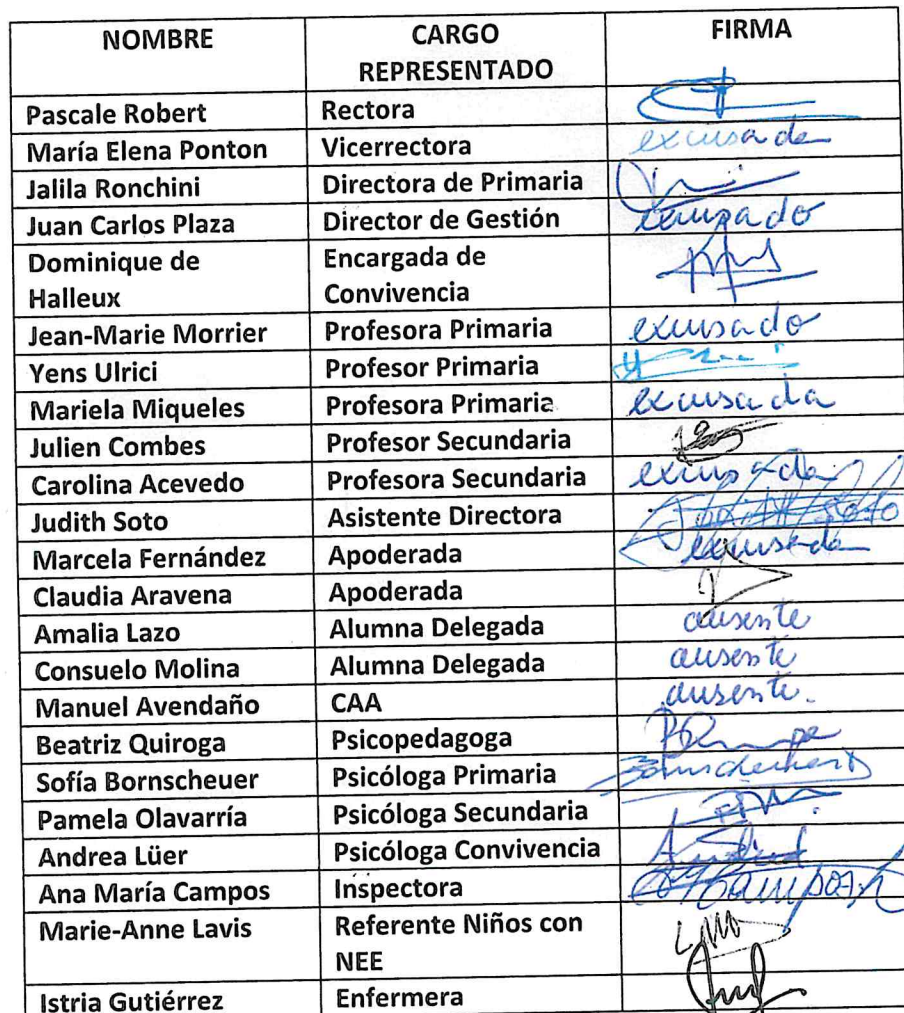 NOMBRE CARGO REPRESENTADO FIRMA
Pascale Robert Rectora
María Elena Ponton Vicerrectora excusada
Jalila Ronchini Directora de Primaria
Juan Carlos Plaza Director de Gestión excusado
Dominique de Halleux Encargada de Convivencia
Jean-Marie Morrier Profesora Primaria excusado
Yens Ulrici Profesor Primaria
Mariela Miqueles Profesora Primaria excusada
Julien Combes Profesor Secundaria
Carolina Acevedo Profesora Secundaria excusada
Judith Soto Asistente Directora Judith Soto
Marcela Fernández Apoderada excusada
Claudia Aravena Apoderada
Amalia Lazo Alumna Delegada ausente
Consuelo Molina Alumna Delegada ausente
Manuel Avendaño CAA ausente.
Beatriz Quiroga Psicopedagoga
Sofía Bornscheuer Psicóloga Primaria
Pamela Olavarría Psicóloga Secundaria
Andrea Lüer Psicóloga Convivencia
Ana María Campos Inspectora
Marie-Anne Lavis Referente Niños con NEE
Istria Gutiérrez Enfermera